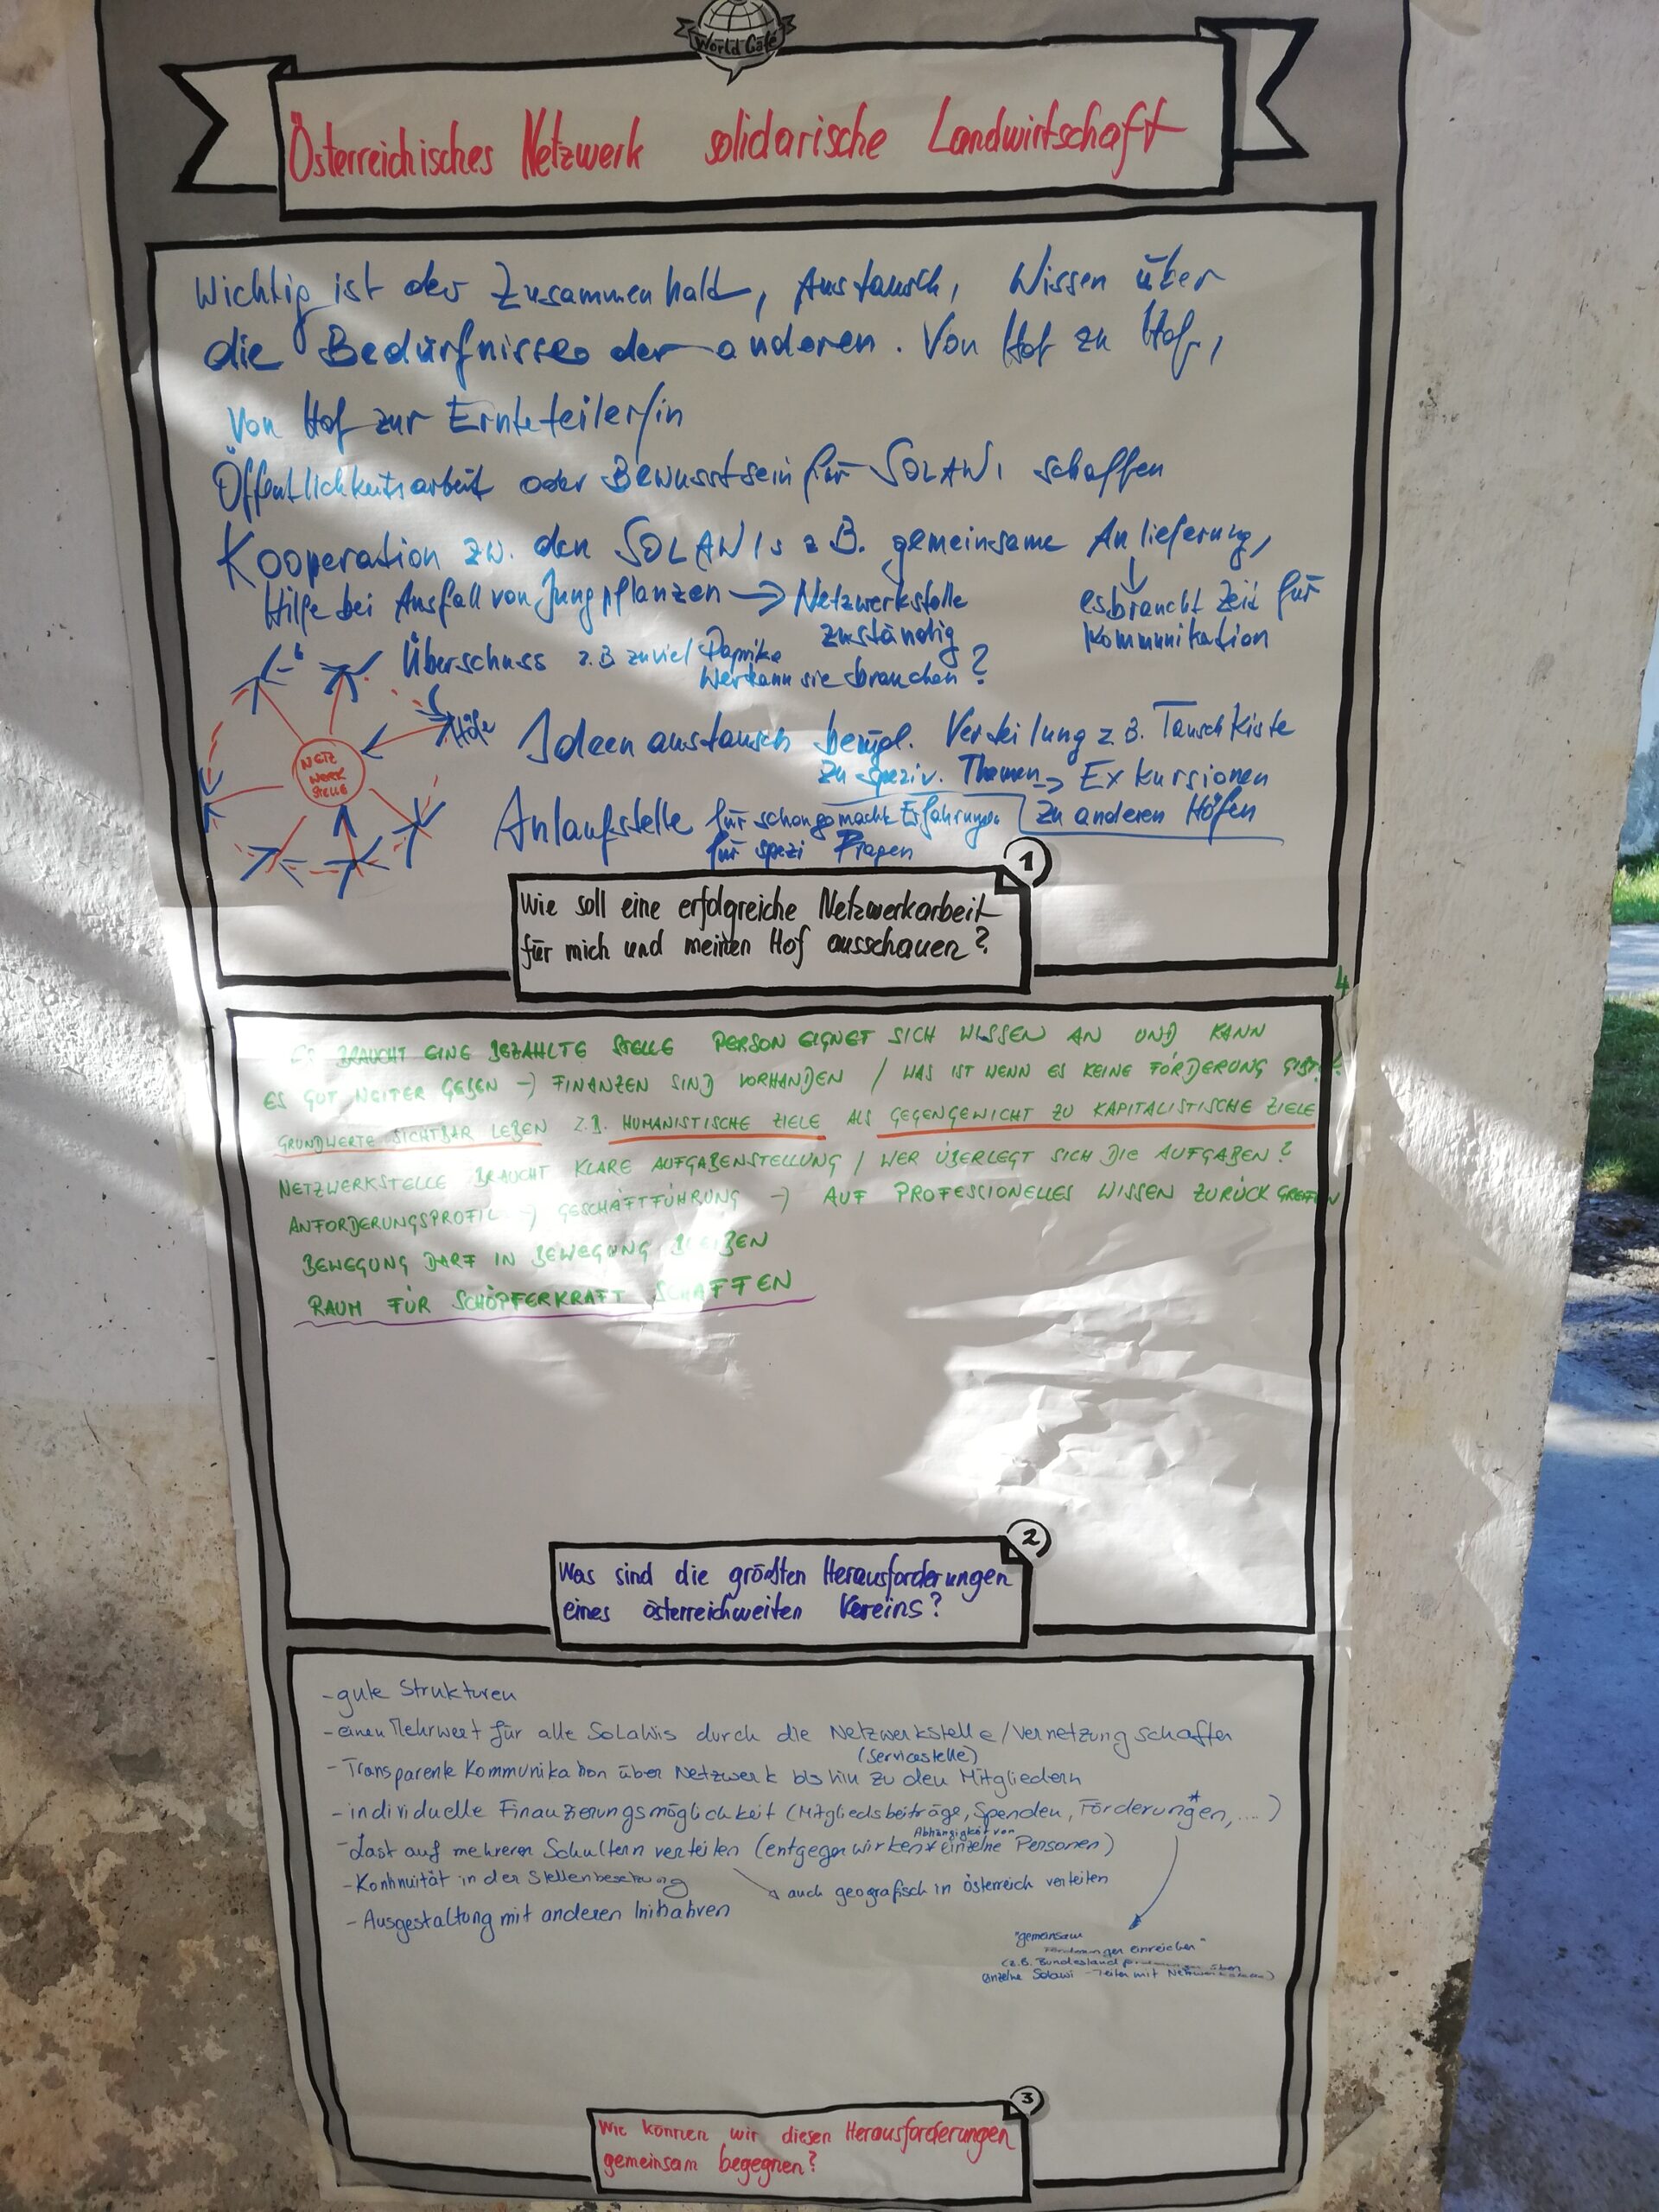 World Café
Österreichisches Netzwerk solidarische Landwirtschaft
Wichtig ist der Zusammenhalt, Austausch, Wissen über
die Bedürfnisse der anderen. Von Hof zu Hof,
Von Hof zur Ernteteiler/in
Öffentlichkeitsarbeit oder Bewusstsein für SOLAWI schaffen
Kooperation zw. den SOLAWIs z B. gemeinsame Anlieferung,
Hilfe bei Ausfall von Jungpflanzen → Netzwerkstelle
zuständig
es braucht Zeit für
Kommunikation
Überschuss z.B zuviel Paprika
Wer kann sie brauchen?
Höfe
NETZ
WERK
STELLE
Ideenaustausch bezügl. Verteilung z B. Tauschkiste
zu speziv. Themen → Exkursionen
zu anderen Höfen
Anlaufstelle für schon gemachte Erfahrungen
für spezi Fragen
1
Wie soll eine erfolgreiche Netzwerkarbeit
für mich und meinen Hof ausschauen?
4
ES BRAUCHT EINE BEZAHLTE STELLE PERSON EIGNET SICH WISSEN AN UND KANN
ES GUT WEITER GEBEN → FINANZEN SIND VORHANDEN / WAS IST WENN ES KEINE FÖRDERUNG GIBT?
GRUNDWERTE SICHTBAR LEBEN Z.B. HUMANISTISCHE ZIELE ALS GEGENGEWICHT ZU KAPITALISTISCHE ZIELE
NETZWERKSTELLE BRAUCHT KLARE AUFGABENSTELLUNG / WER ÜBERLEGT SICH DIE AUFGABEN?
ANFORDERUNGSPROFIL → GESCHÄFTFÜHRUNG → AUF PROFESSIONELLES WISSEN ZURÜCK GREIFEN
BEWEGUNG DARF IN BEWEGUNG BLEIBEN
RAUM FÜR SCHÖPFERKRAFT SCHAFFEN
2
Was sind die größten Herausforderungen
eines österreichweiten Vereins?
- gute Strukturen
- einen Mehrwert für alle SolaWis durch die Netzwerkstelle/Vernetzung schaffen
(Servicestelle)
- Transparente Kommunikation über Netzwerk bis hin zu den Mitgliedern
- individuelle Finanzierungsmöglichkeit (Mitgliedsbeiträge, Spenden, Förderungen*, ....)
Abhängigkeit von
- Last auf mehreren Schultern verteilen (entgegenwirken * einzelne Personen)
- Kontinuität in der Stellenbesetzung
auch geografisch in österreich verteilen
- Ausgestaltung mit anderen Initiativen
"gemeinsam
Förderungen einreichen"
(z.B. Bundesland
einzelne Solawi
3
Wie können wir diesen Herausforderungen
gemeinsam begegnen?